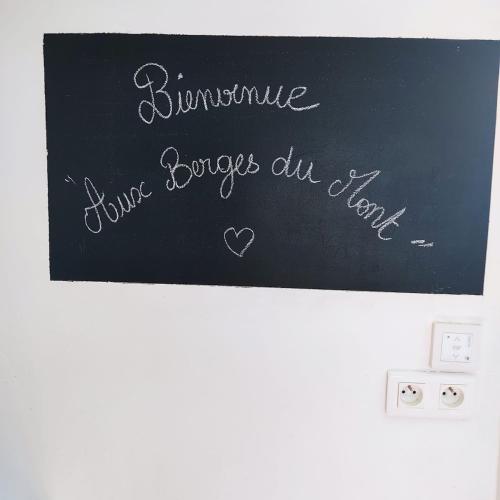 Bienvenue
"Aux Berges du Mont"